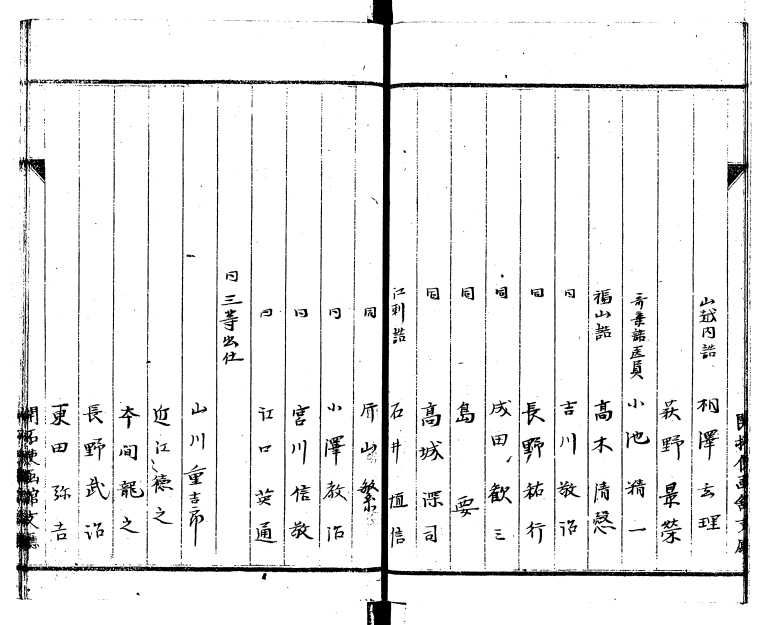 山越内詰 相澤玄理
荻野景榮
斉藤詰医員 小池精一
福山詰 高木清慤
同 吉川敬治
同 長野祐行
同 成田歓三
同 島要
同 高城深司
江刺詰 石井垣信
同 片山繁
同 小澤教治
同 宮川信敬
同 江口英通
同三等出仕
山川重吉郎
近江徳之
本間龍之
長野武治
東田弥吉
開拓使函館支廳